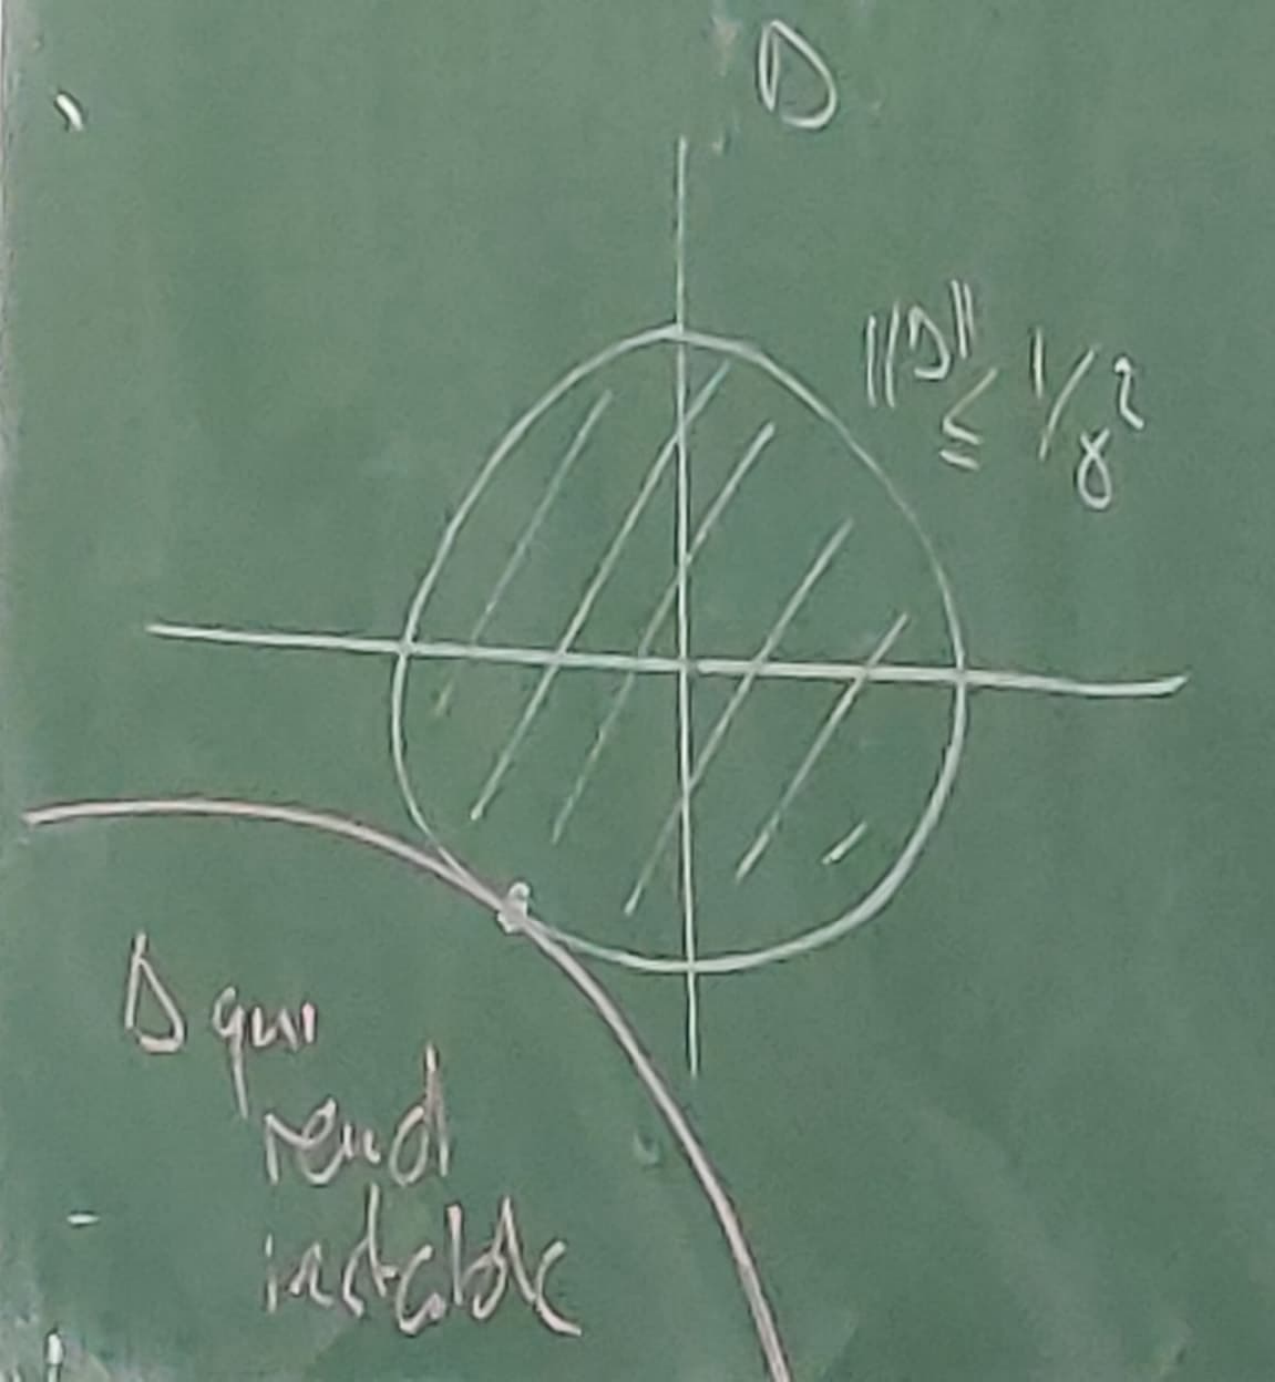 Δ
||Δ|| ≤ 1/γ²
Δ qui
rend
instable